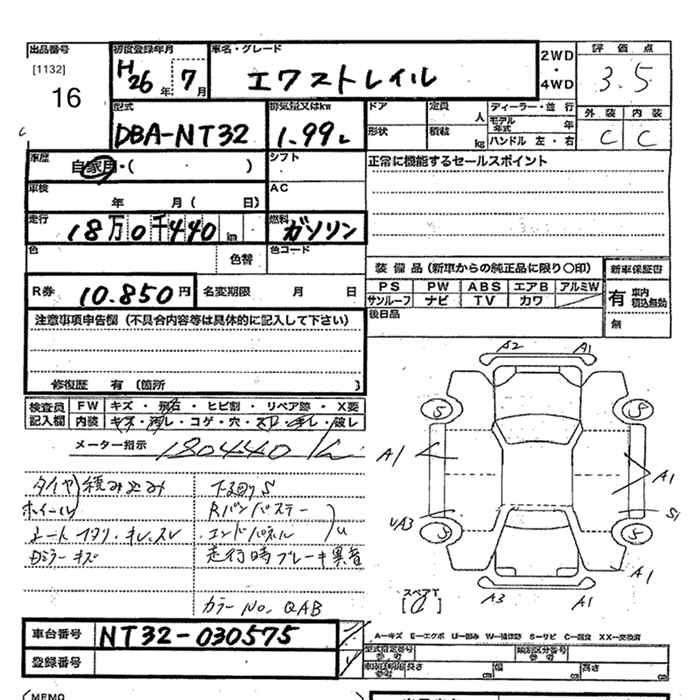 出品番号 初度登録年月 車名・グレード 2WD 評価点
[1132] H26年 7月 エクストレイル ・ 3.5
16 4WD
型式 排気量又はkw ドア 定員 人 ディーラー・並行 外装 内装
DBA-NT32 1.99L 形状 積載 kg モデル年式 年 C C
ハンドル 左・右
車歴 自家用・( ) シフト 正常に機能するセールスポイント
車検 年 月( 日) AC
走行 18万0千440km 燃料 ガソリン
色 色替 色コード
装備品(新車からの純正品に限り○印) 新車保証書
R券 10.850円 名変期限 月 日 PS PW ABS エアB アルミW 有 車内積込無効
サンルーフ ナビ TV カワ
後日品 無
注意事項申告欄(不具合内容等は具体的に記入して下さい)
修復歴 有(箇所 )
検査員 FW キズ・飛石・ヒビ割・リペア跡・X要
記入欄 内装 キズ・汚し・コゲ・穴・スレ・キレ・破レ
メーター指示 180440K
タイヤ)積み込み 下回りS
ホイール Rバンパステー
シートイタリ・キレ、スレ エンドパネル )u
Dミラーキズ 走行時ブレーキ異音
カラーNo, QAB
A2 A1
S S
A1 A1
UA3 S1
S S
A1
スペアT
A3 A1
車台番号 NT32-030575
登録番号
A-キズ E-エクボ U-凹み W-補修跡 S-サビ C-腐食 XX-交換済
型式指定番号 参考 類別区分番号 参考
長さ cm 幅 cm 高さ cm
(MEMO